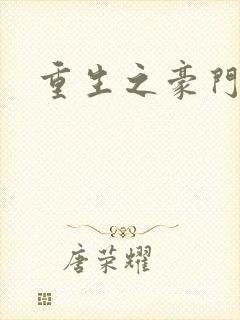 重生之豪門
唐荣耀